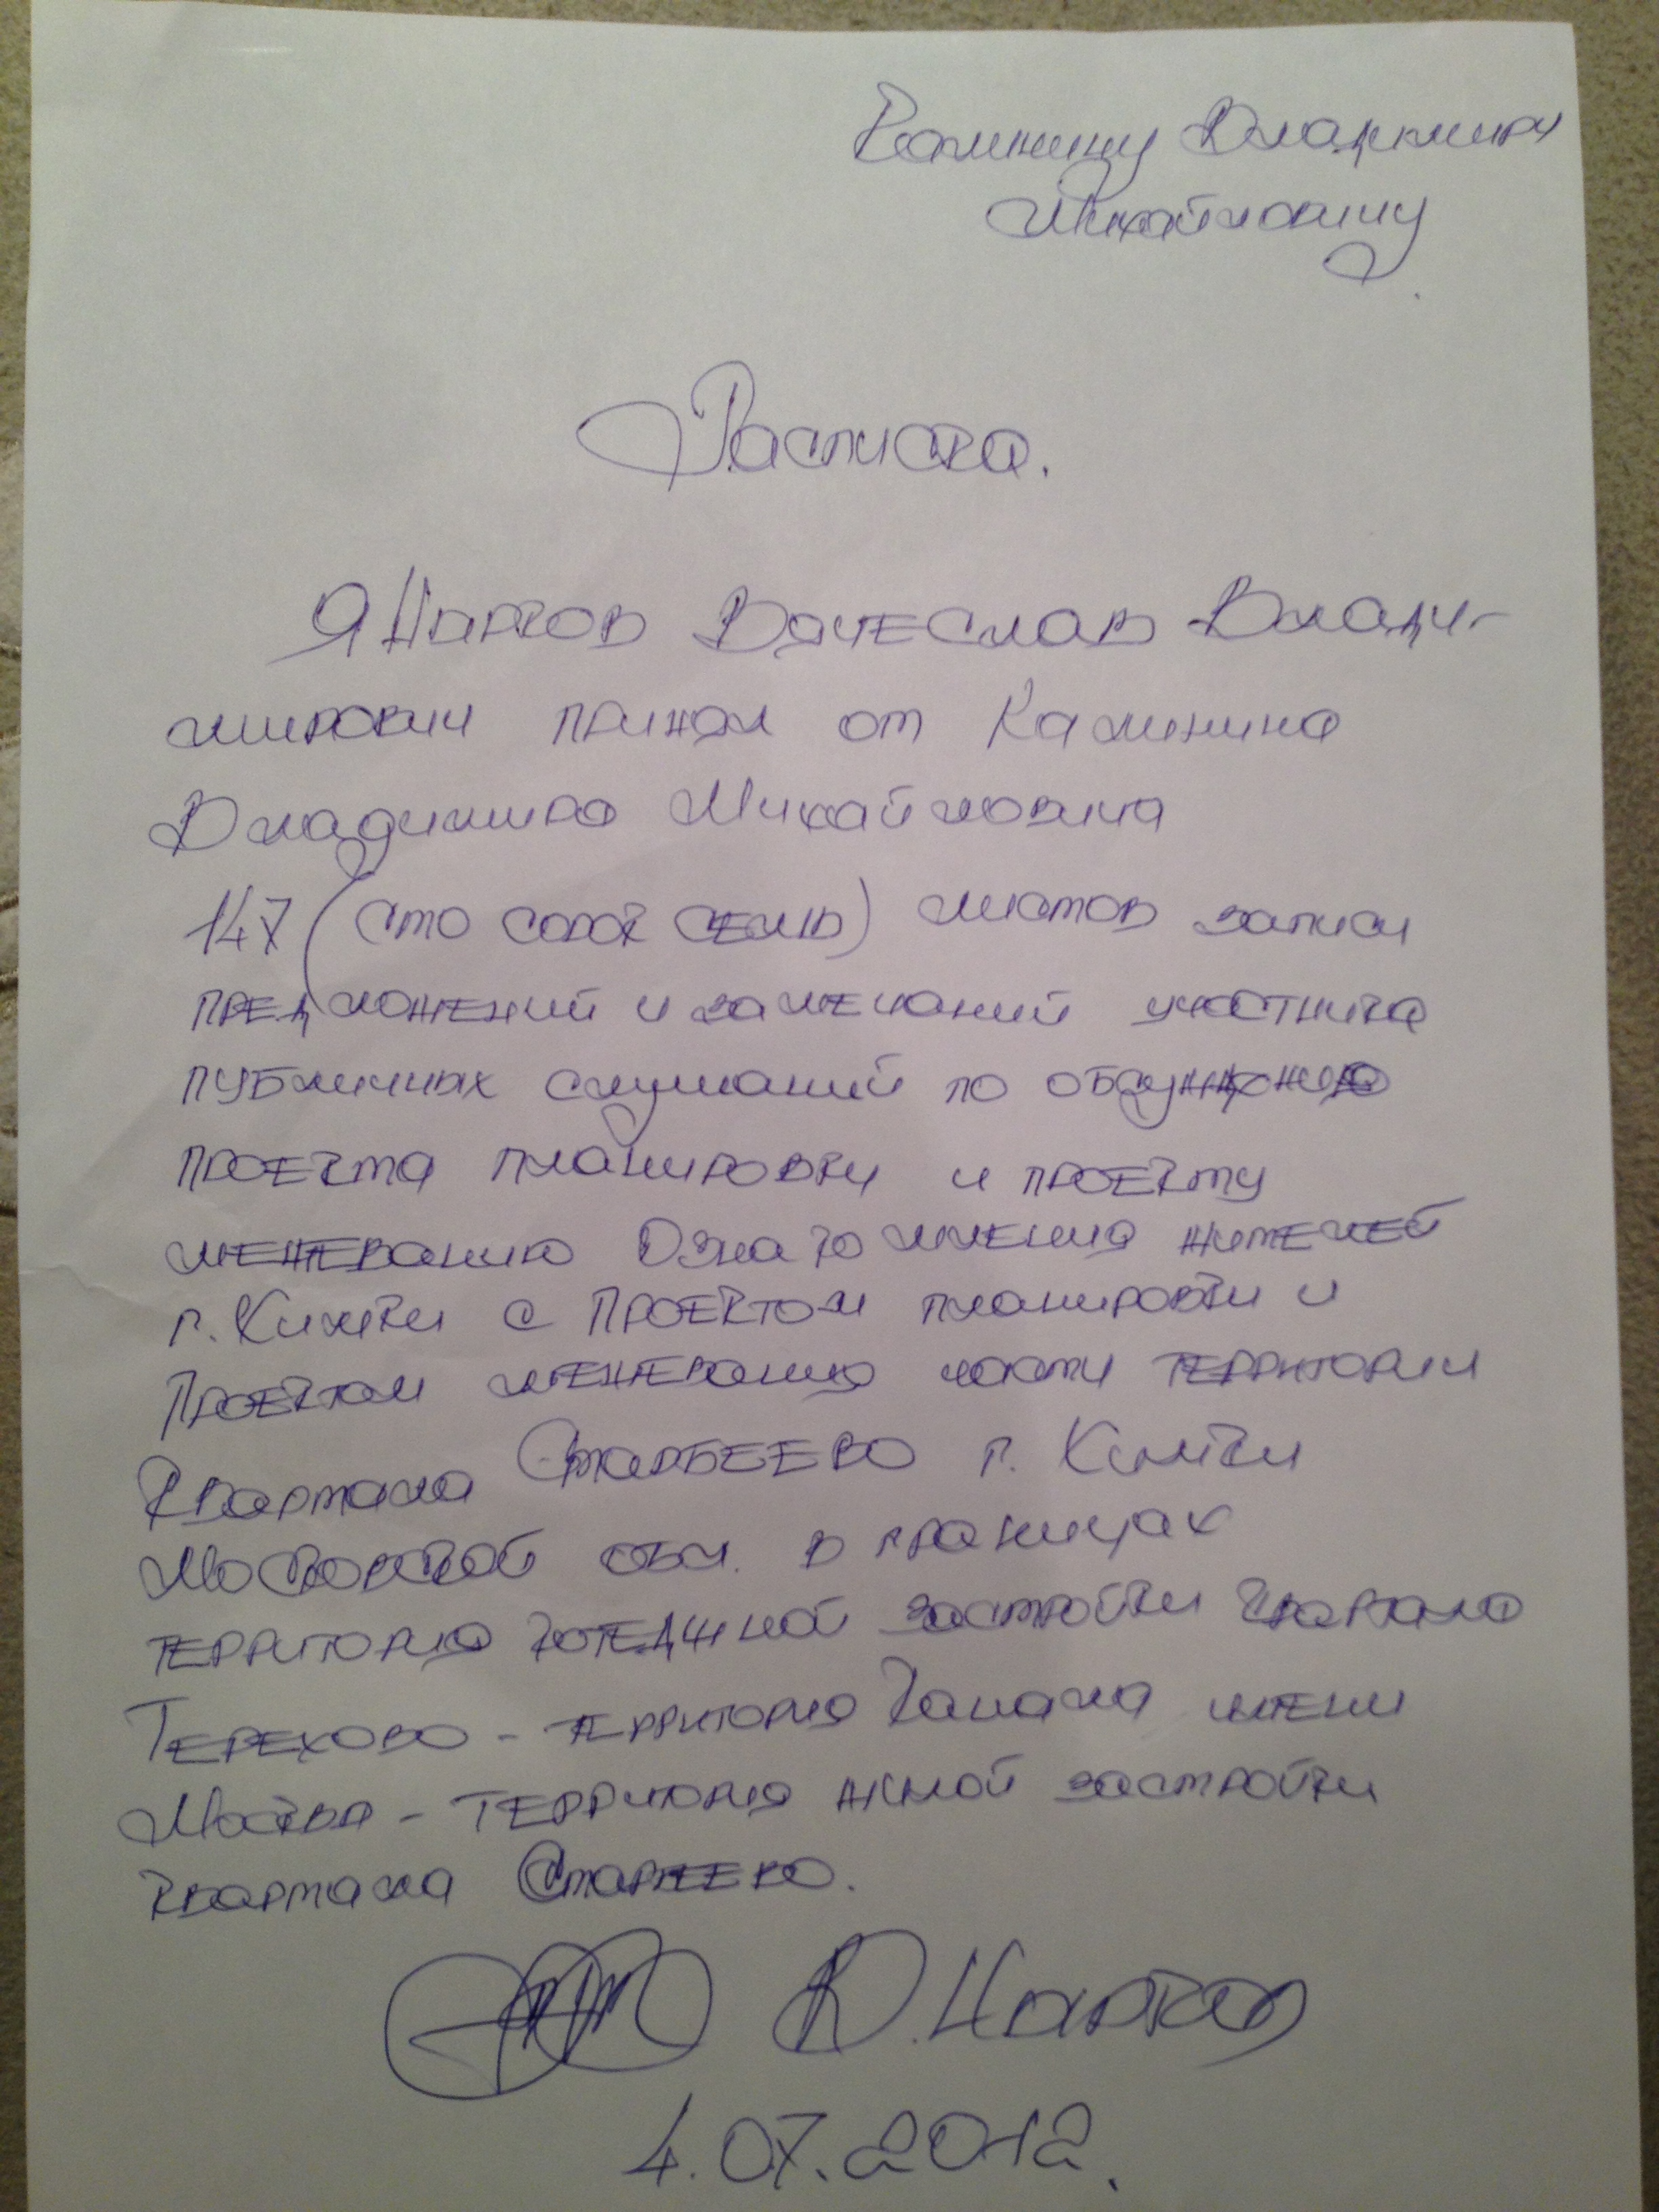 Калинину Владимиру
Михайловичу
Расписка.
Я Царков Вячеслав Влади-
мирович принял от Калинина
Владимира Михайловича
147 (сто сорок семь) листов записи
предложений и замечаний участника
публичных слушаний по
проекта планировки и проекту
межеванию Ознакомления жителей
г. Химки с Проектом планировки и
Проектом межевания части территории
Квартала Старбеево г. Химки
Московской обл. в границах
территория котеджной застройки квартала
Терехово - территория Канала имени
Москвы - территория жилой застройки
квартала Старбеево.
В. Царков
4.07.2012.